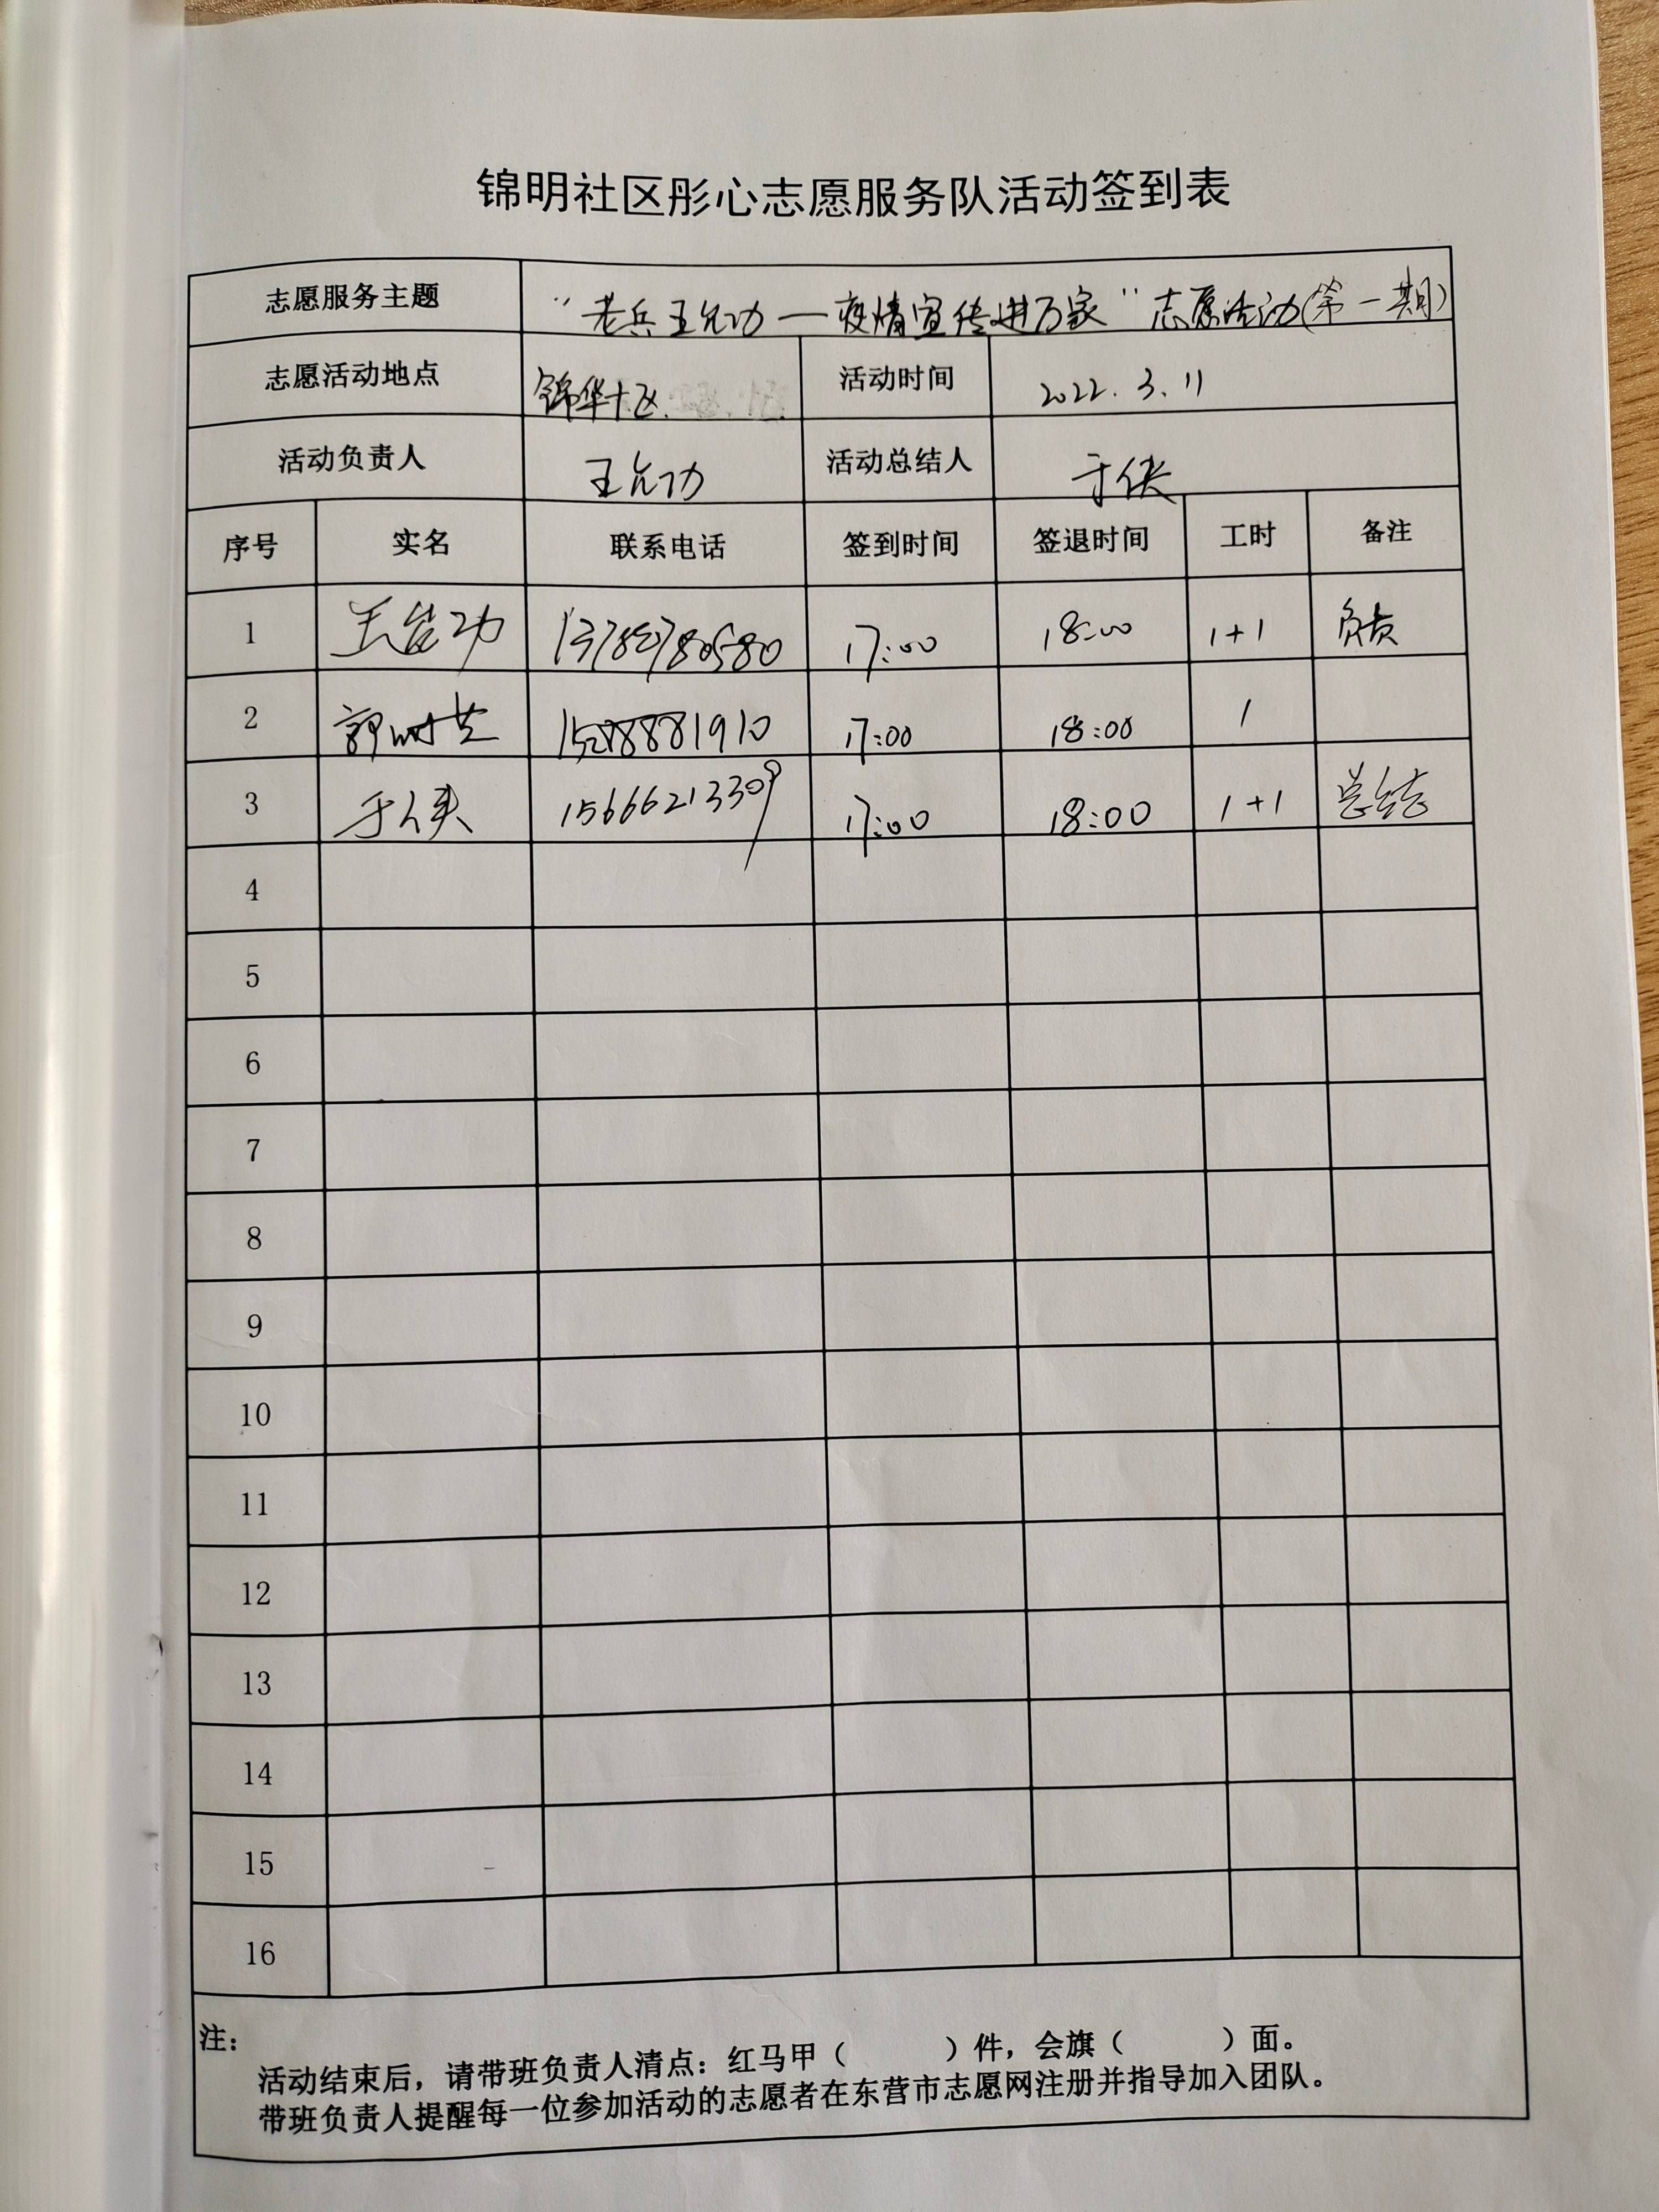 锦明社区彤心志愿服务队活动签到表
志愿服务主题 “老兵王允功—疫情宣传进万家”志愿活动(第一期)
志愿活动地点 锦华十区. 活动时间 2022.3.11
活动负责人 王允功 活动总结人 于侠
序号 实名 联系电话 签到时间 签退时间 工时 备注
1 王允功 17:00 18:00 1+1 负责
2 17:00 18:00 1
3 于侠 15666213309 17:00 18:00 1+1 总结
4
5
6
7
8
9
10
11
12
13
14
15
16
注：
活动结束后，请带班负责人清点：红马甲（ ）件，会旗（ ）面。
带班负责人提醒每一位参加活动的志愿者在东营市志愿网注册并指导加入团队。